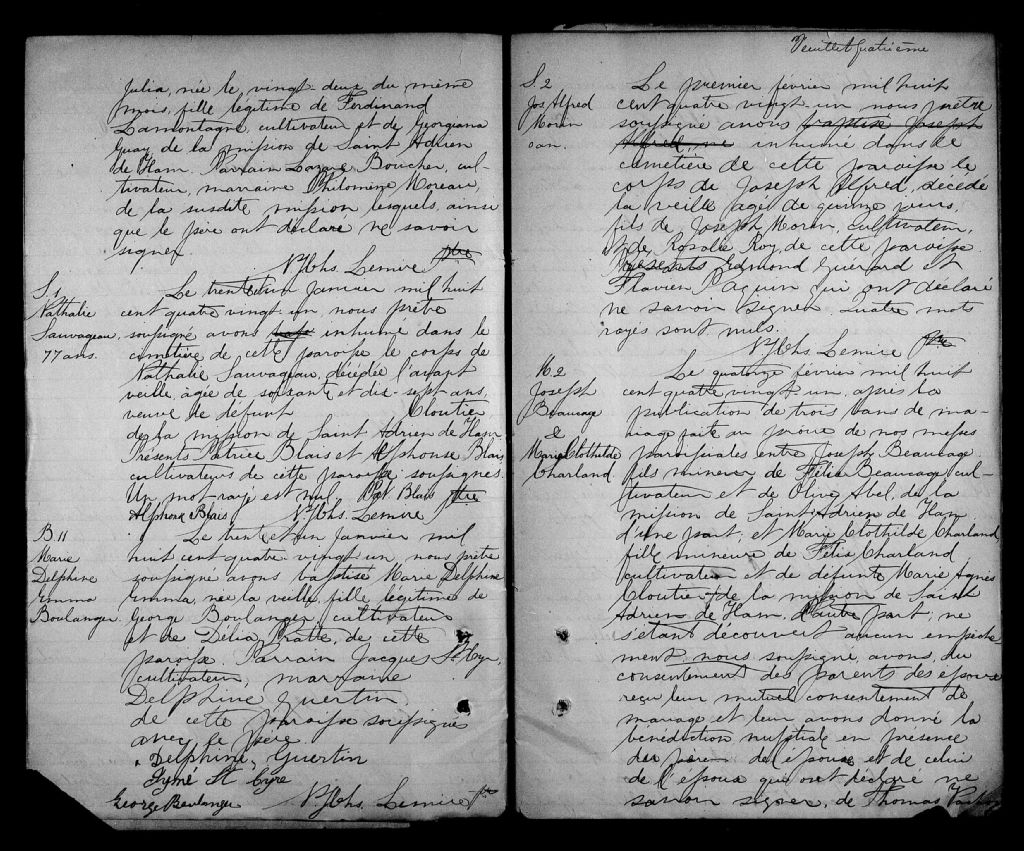 Julia, née le vingt deux du même
mois, fille légitime de Ferdinand
Lamontagne, cultivateur et de Georgiana
Guay de la mission de Saint Adrien
de Ham. Parrain Lazare Boucher, cul-
tivateur, marraine Philomène Moreau,
de la susdite mission lesquels, ainsi
que le père ont déclaré ne savoir
signer.
Lemire Ptre
S. 1
Nathalie
Sauvageau,
77 ans.
Le trente et un janvier mil huit
cent quatre vingt un nous prêtre
soussigné avons inhumé dans le
cimetière de cette paroisse le corps de
Nathalie Sauvageau, décédée l'avant
veille, âgée de soixante et dix-sept ans,
veuve de défunt Cloutier
de la mission de Saint Adrien de Ham
Présents Patrice Blais et Alphonse Blais
cultivateurs de cette paroisse soussignés.
Un mot rayé est nul. Pat Blais
Alphonse Blais Lemire Ptre
B 11
Marie
Delphine
Emma
Boulanger
Le trente et un janvier mil
huit cent quatre-vingt un, nous prêtre
soussigné avons baptisé Marie Delphine
Emma, née la veille, fille légitime de
George Boulanger, cultivateur
et de Délia Pratte, de cette
paroisse. Parrain Jacques St Cyr,
cultivateur, marraine
Delphine Guertin,
de cette paroisse soussignés
avec le père.
Delphine Guertin
St Cyre
George Boulanger Lemire Ptre
Feuillet quatrième
S. 2
Jos Alfred
Moran
Le premier février mil huit
cent quatre vingt un nous prêtre
soussigné avons baptisé Joseph
Alfred, né inhumé dans le
cimetière de cette paroisse le
corps de Joseph Alfred, décédé
la veille âgé de quinze jours,
fils de Joseph Moran, cultivateur,
et de Rosalie Roy, de cette paroisse
Présents Edmond Guérard et
Flavien Paquin qui ont déclaré
ne savoir signer. Quatre mots
rayés sont nuls.
Lemire Ptre
M 2
Joseph
Beaucage
&
Marie Clothilde
Charland
Le quatorze février mil huit
cent quatre vingt un, après la
publication de trois bans de ma-
riage faite au prône de nos messes
paroissiales entre Joseph Beaucage
fils mineur de Félix Beaucage cul-
tivateur et de Olive Abel, de la
mission de Saint Adrien de Ham
d'une part, et Marie Clothilde Charland
fille mineure de Félix Charland
cultivateur et de défunte Marie Agnès
Cloutier de la mission de Saint
Adrien de Ham, d'autre part, ne
s'étant découvert aucun empêche
ment, nous soussigné, avons, du
consentement des parents des époux
reçu leur mutuel consentement de
mariage et leur avons donné la
bénédiction nuptiale en présence
du père de l'épouse et de celui
de l'époux qui ont déclaré ne
savoir signer, de Thomas